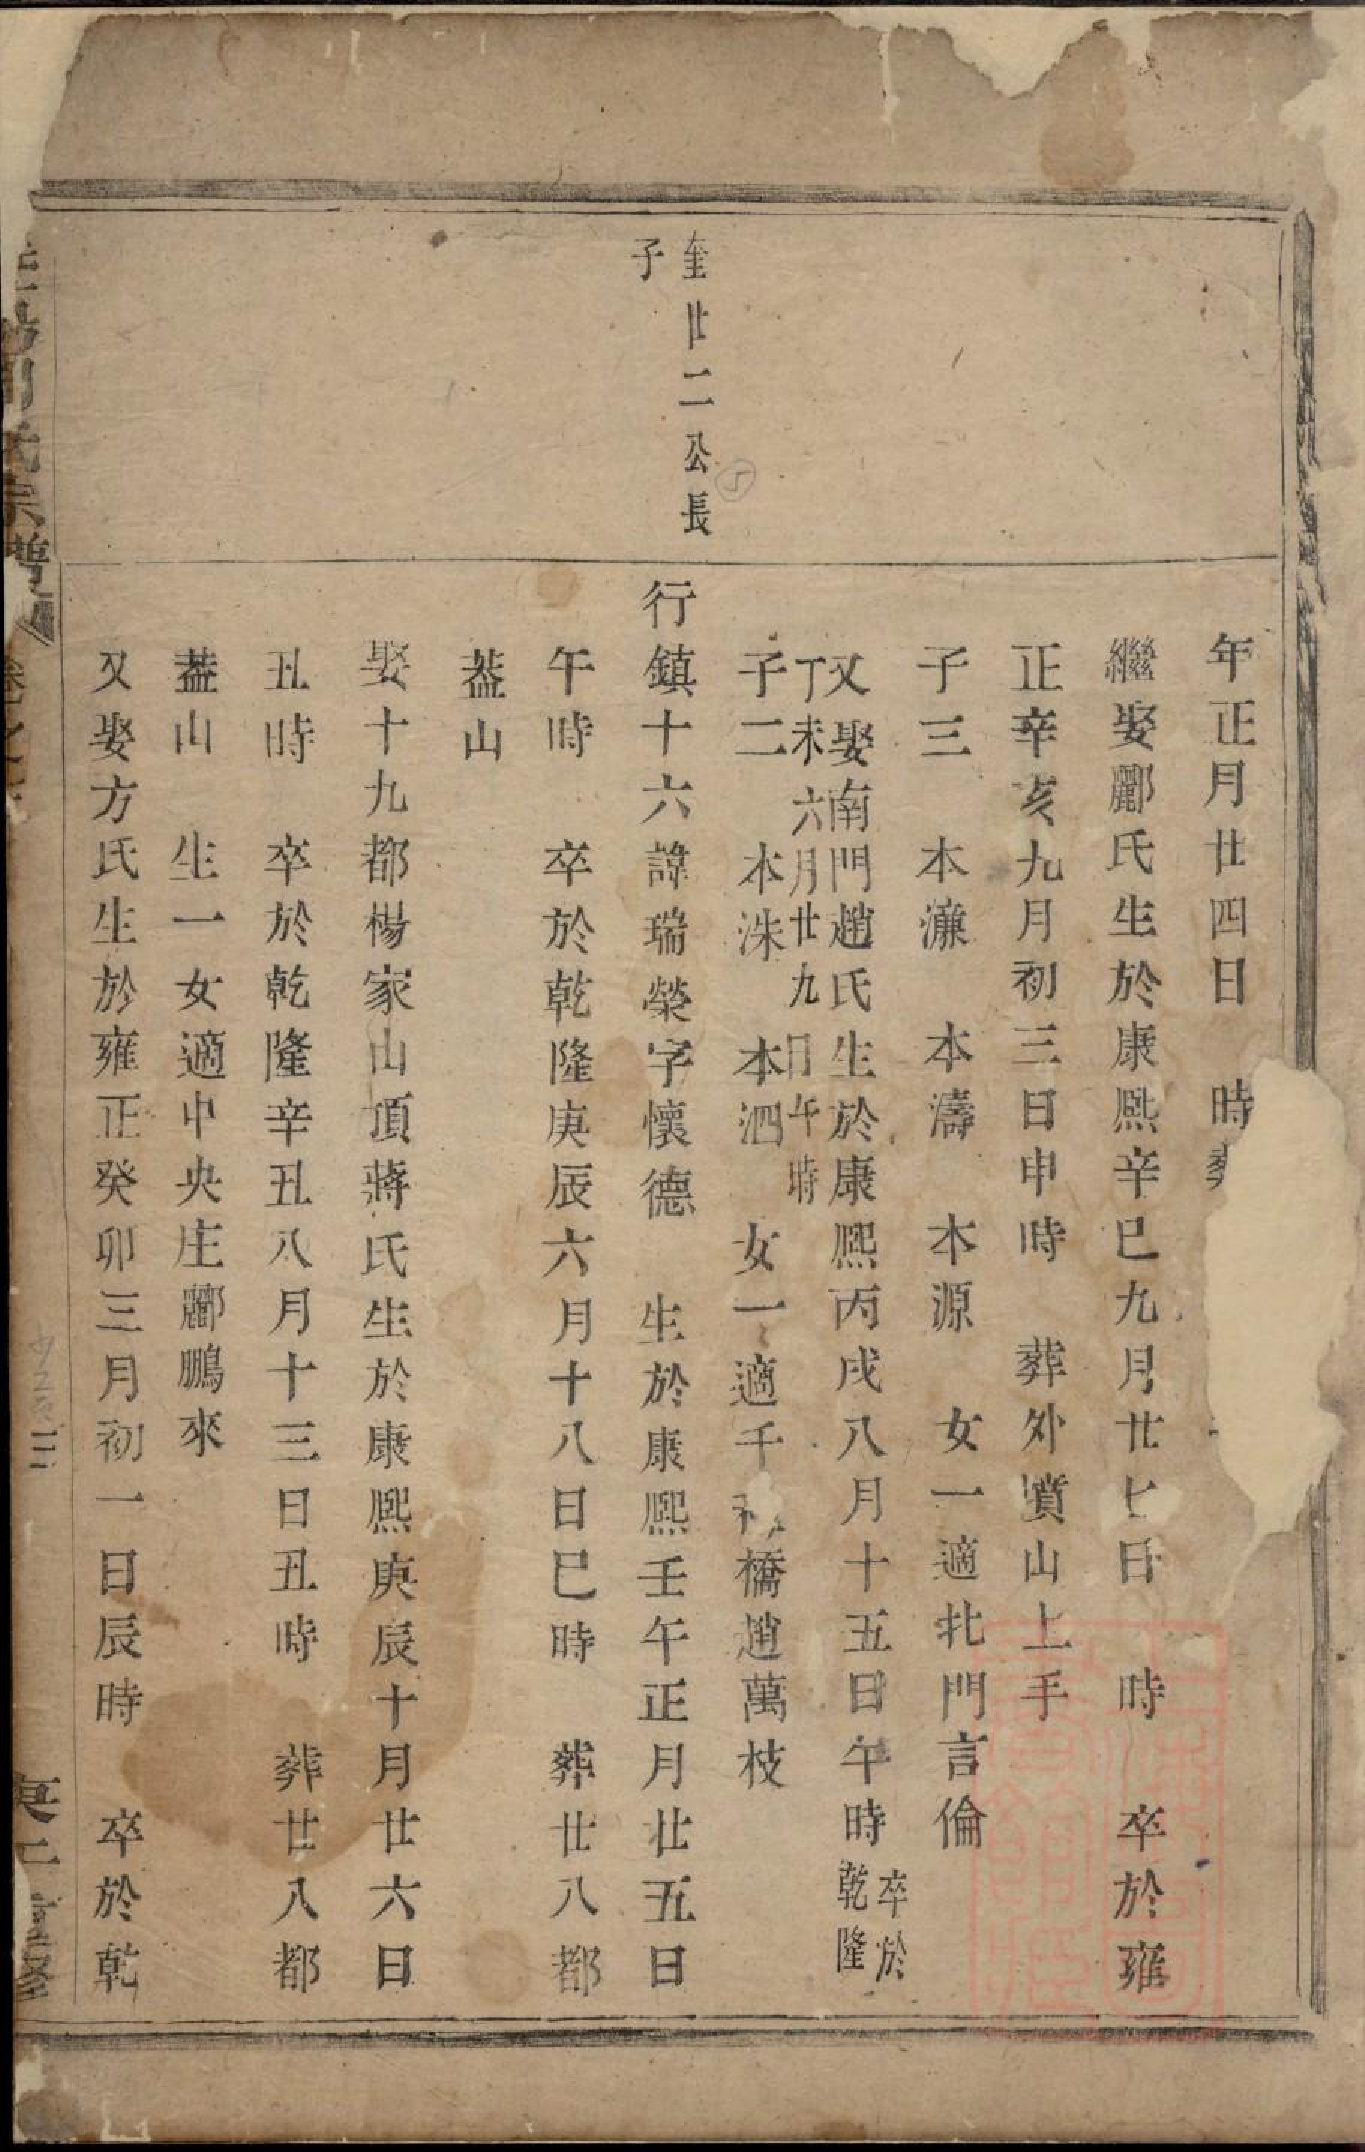 年正月廿四日　時葬
繼娶酈氏生於康熙辛巳九月廿七日　時　卒於雍
正辛亥九月初三日申時　葬外墳山上手
子三　本濂　本濤　本源　女一適北門言倫
又娶南門趙氏生於康熙丙戌八月十五日午時卒於乾隆
丁未六月廿九日午時
子二　本洙　本泗　女一適千橋趙萬枝
奎廿二公長
子
行鎮十六諱瑞榮字懷德　生於康熙壬午正月廿五日
午時　卒於乾隆庚辰六月十八日巳時　葬廿八都
葢山
娶十九都楊家山頂蔣氏生於康熙庚辰十月廿六日
丑時　卒於乾隆辛丑八月十三日丑時　葬廿八都
葢山　生一女適中央庄酈鵬來
又娶方氏生於雍正癸卯三月初一日辰時　卒於乾
氏宗譜
重修